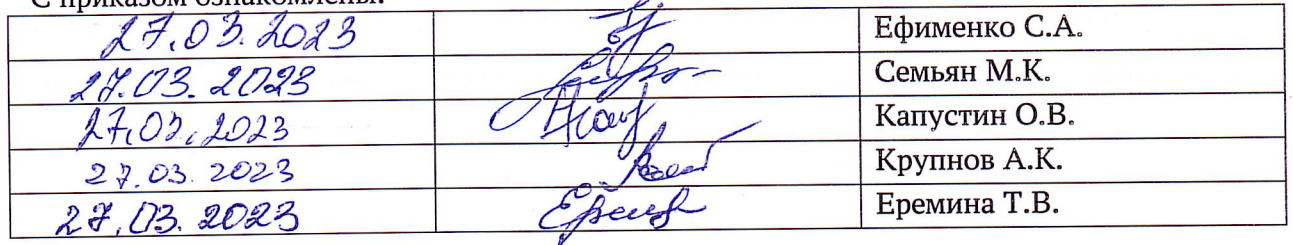 С приказом ознакомлены:
27.03.2023 Ефименко С.А.
27.03.2023 Семьян М.К.
27.03.2023 Капустин О.В.
27.03.2023 Крупнов А.К.
27.03.2023 Еремина Т.В.